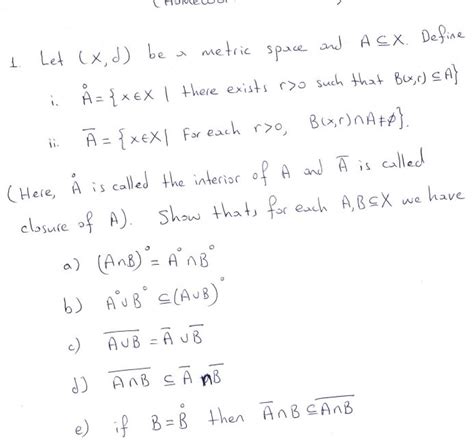 1. Let (X,d) be a metric space and A⊆X. Define
i. Å = {x∈X | there exists r>0 such that B(x,r)⊆A}
ii. A̅ = {x∈X | For each r>0, B(x,r)∩A≠∅}.
(Here, Å is called the interior of A and A̅ is called
closure of A). Show that, for each A,B⊆X we have
a) (A∩B)° = A°∩B°
b) A°∪B° ⊆ (A∪B)°
c) \overline{A∪B} = A̅ ∪ B̅
d) \overline{A∩B} ⊆ A̅ ∩ B̅
e) if B = B̊ then A̅∩B ⊆ \overline{A∩B}